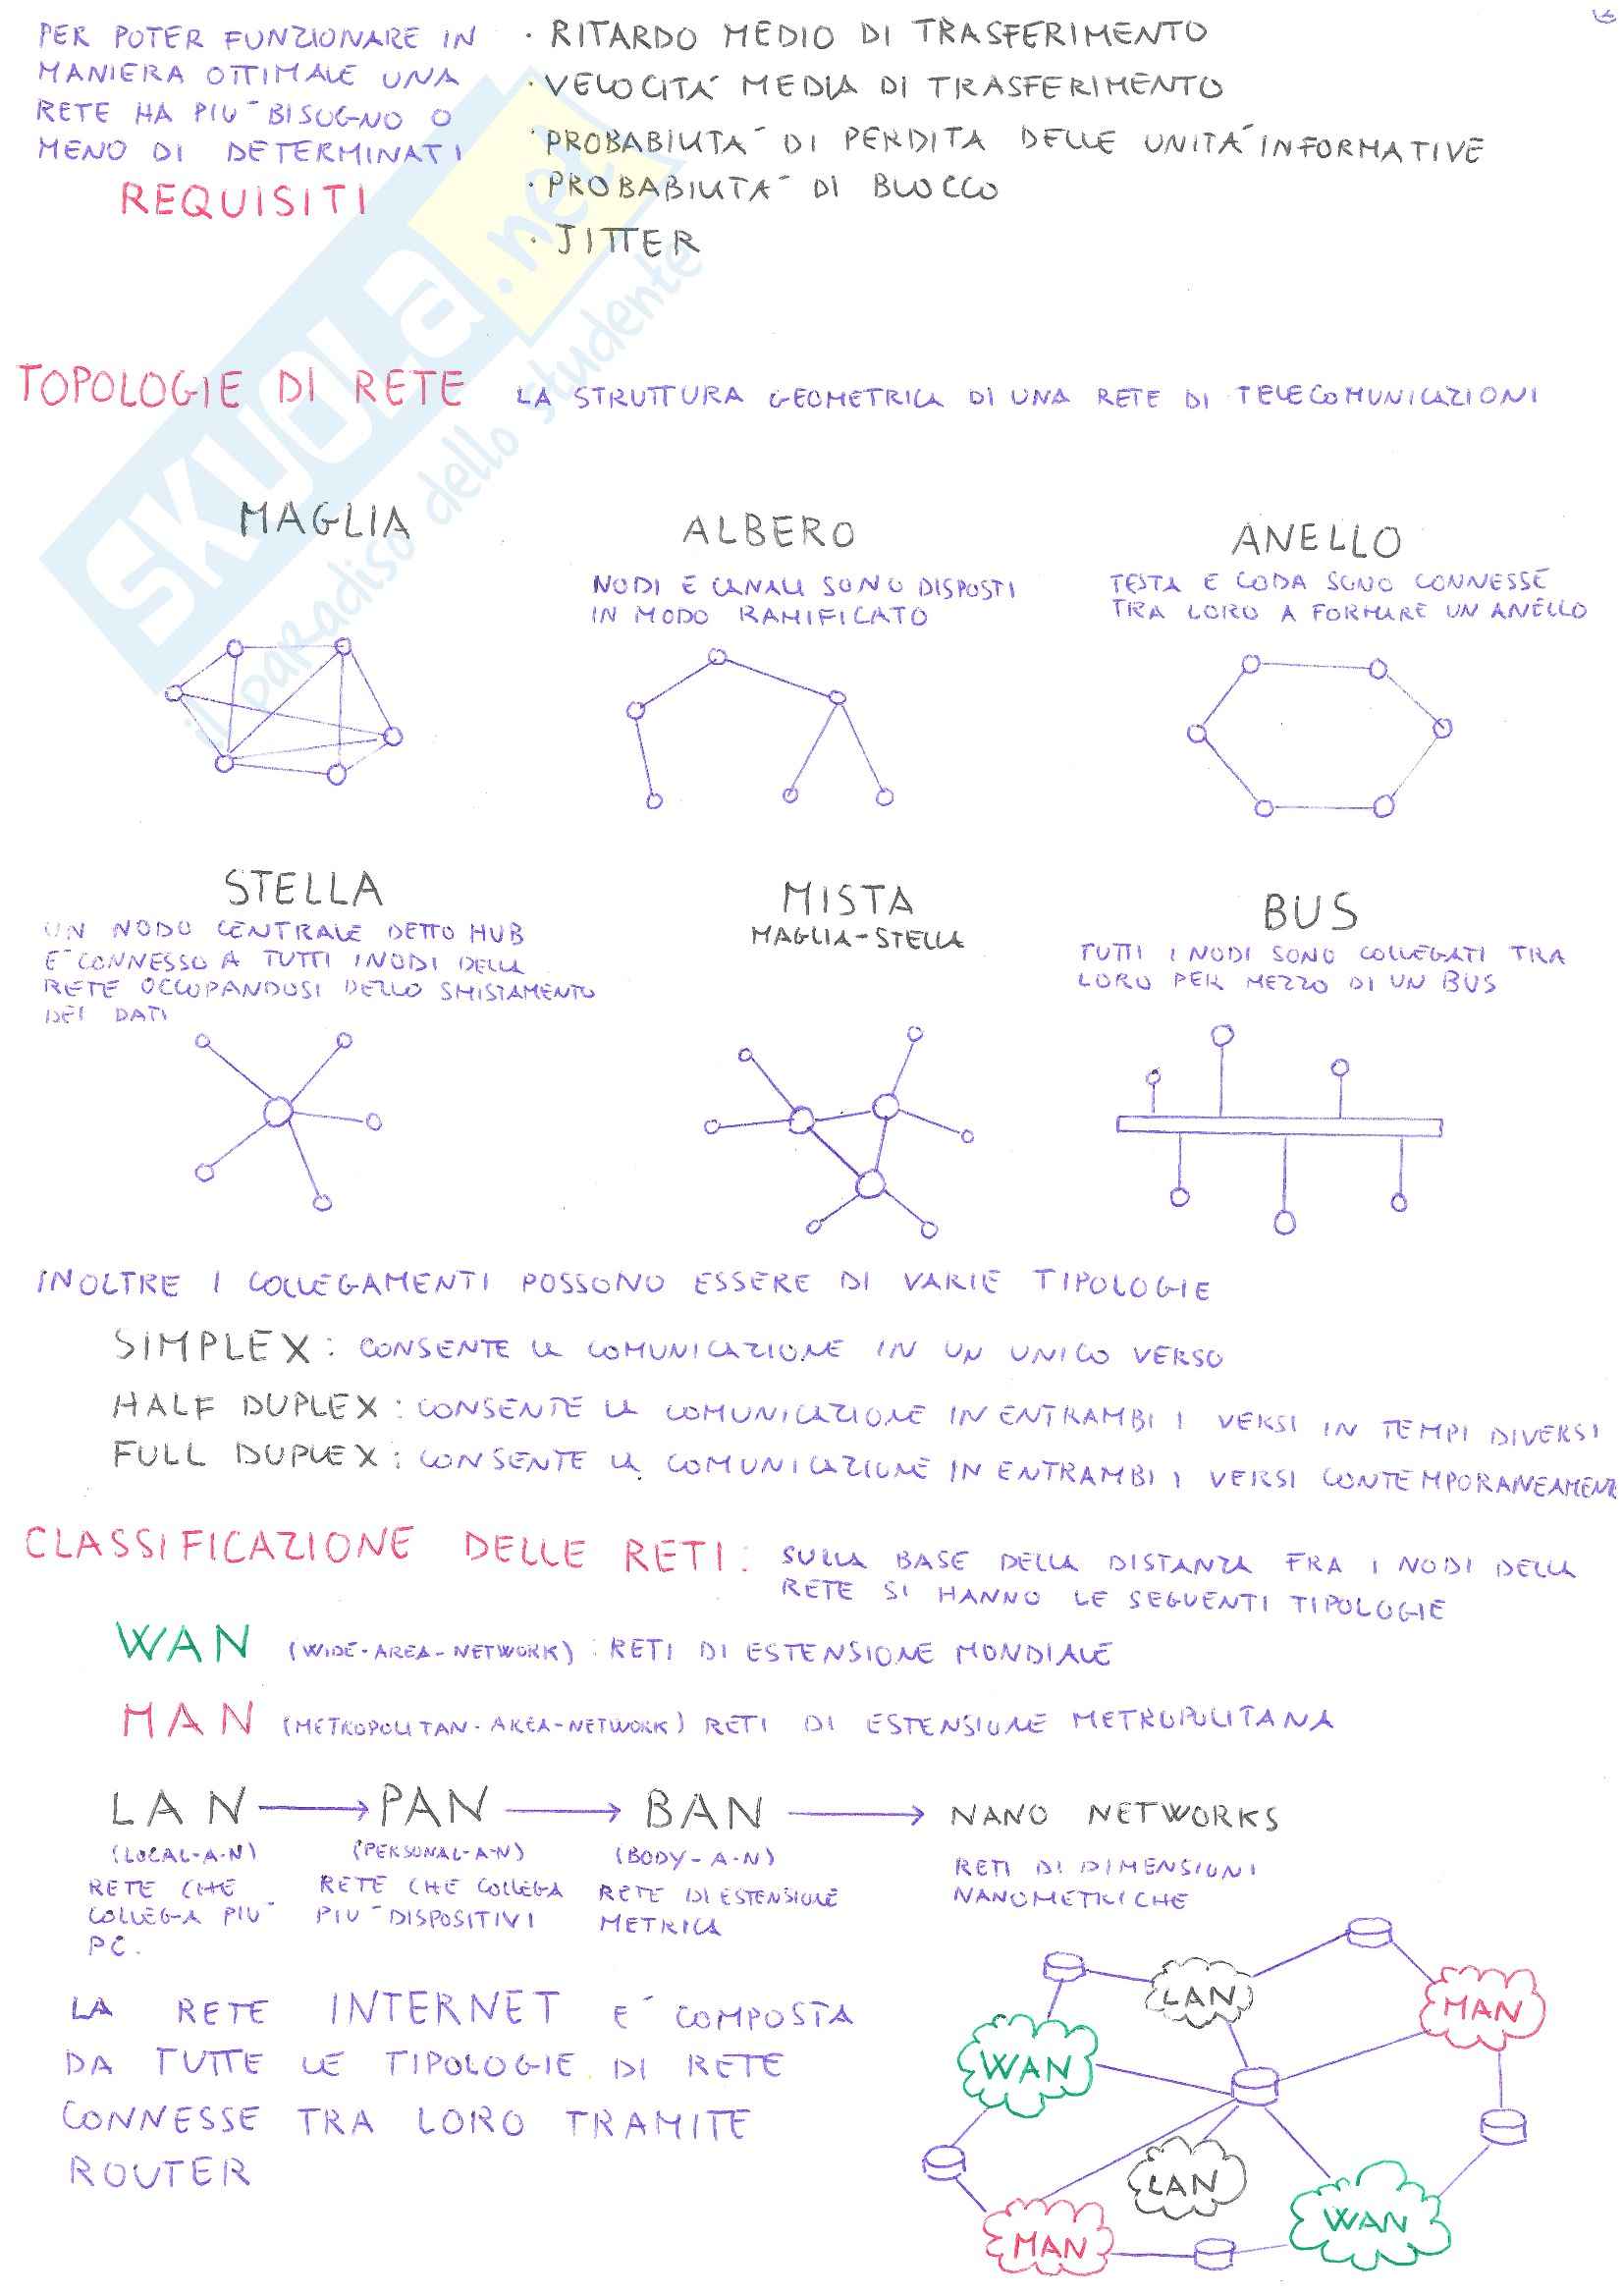 PER POTER FUNZIONARE IN
MANIERA OTTIMALE UNA
RETE HA PIU' BISOGNO O
MENO DI DETERMINATI
REQUISITI
· RITARDO MEDIO DI TRASFERIMENTO
· VELOCITA' MEDIA DI TRASFERIMENTO
· PROBABILITA' DI PERDITA DELLE UNITA' INFORMATIVE
· PROBABILITA' DI BLOCCO
· JITTER
SKUOLA.net
il paradiso dello studente
TOPOLOGIE DI RETE LA STRUTTURA GEOMETRICA DI UNA RETE DI TELECOMUNICAZIONI
MAGLIA
ALBERO
NODI E CANALI SONO DISPOSTI
IN MODO RAMIFICATO
ANELLO
TESTA E CODA SONO CONNESSE
TRA LORO A FORMARE UN ANELLO
STELLA
UN NODO CENTRALE DETTO HUB
E' CONNESSO A TUTTI I NODI DELLA
RETE OCCUPANDOSI DELLO SMISTAMENTO
DEI DATI
MISTA
MAGLIA-STELLA
BUS
TUTTI I NODI SONO COLLEGATI TRA
LORO PER MEZZO DI UN BUS
INOLTRE I COLLEGAMENTI POSSONO ESSERE DI VARIE TIPOLOGIE
SIMPLEX: CONSENTE LA COMUNICAZIONE IN UN UNICO VERSO
HALF DUPLEX: CONSENTE LA COMUNICAZIONE IN ENTRAMBI I VERSI IN TEMPI DIVERSI
FULL DUPLEX: CONSENTE LA COMUNICAZIONE IN ENTRAMBI I VERSI CONTEMPORANEAMENTE
CLASSIFICAZIONE DELLE RETI: SULLA BASE DELLA DISTANZA FRA I NODI DELLA
RETE SI HANNO LE SEGUENTI TIPOLOGIE
WAN (WIDE-AREA-NETWORK): RETI DI ESTENSIONE MONDIALE
MAN (METROPOLITAN-AREA-NETWORK) RETI DI ESTENSIONE METROPOLITANA
LAN → PAN → BAN → NANO NETWORKS
(LOCAL-A-N)
RETE CHE
COLLEGA PIU'
PC.
(PERSONAL-A-N)
RETE CHE COLLEGA
PIU' DISPOSITIVI
(BODY-A-N)
RETE DI ESTENSIONE
METRICA
RETI DI DIMENSIONI
NANOMETRICHE
LA RETE INTERNET E' COMPOSTA
DA TUTTE LE TIPOLOGIE DI RETE
CONNESSE TRA LORO TRAMITE
ROUTER
LAN
MAN
WAN
LAN
WAN
MAN